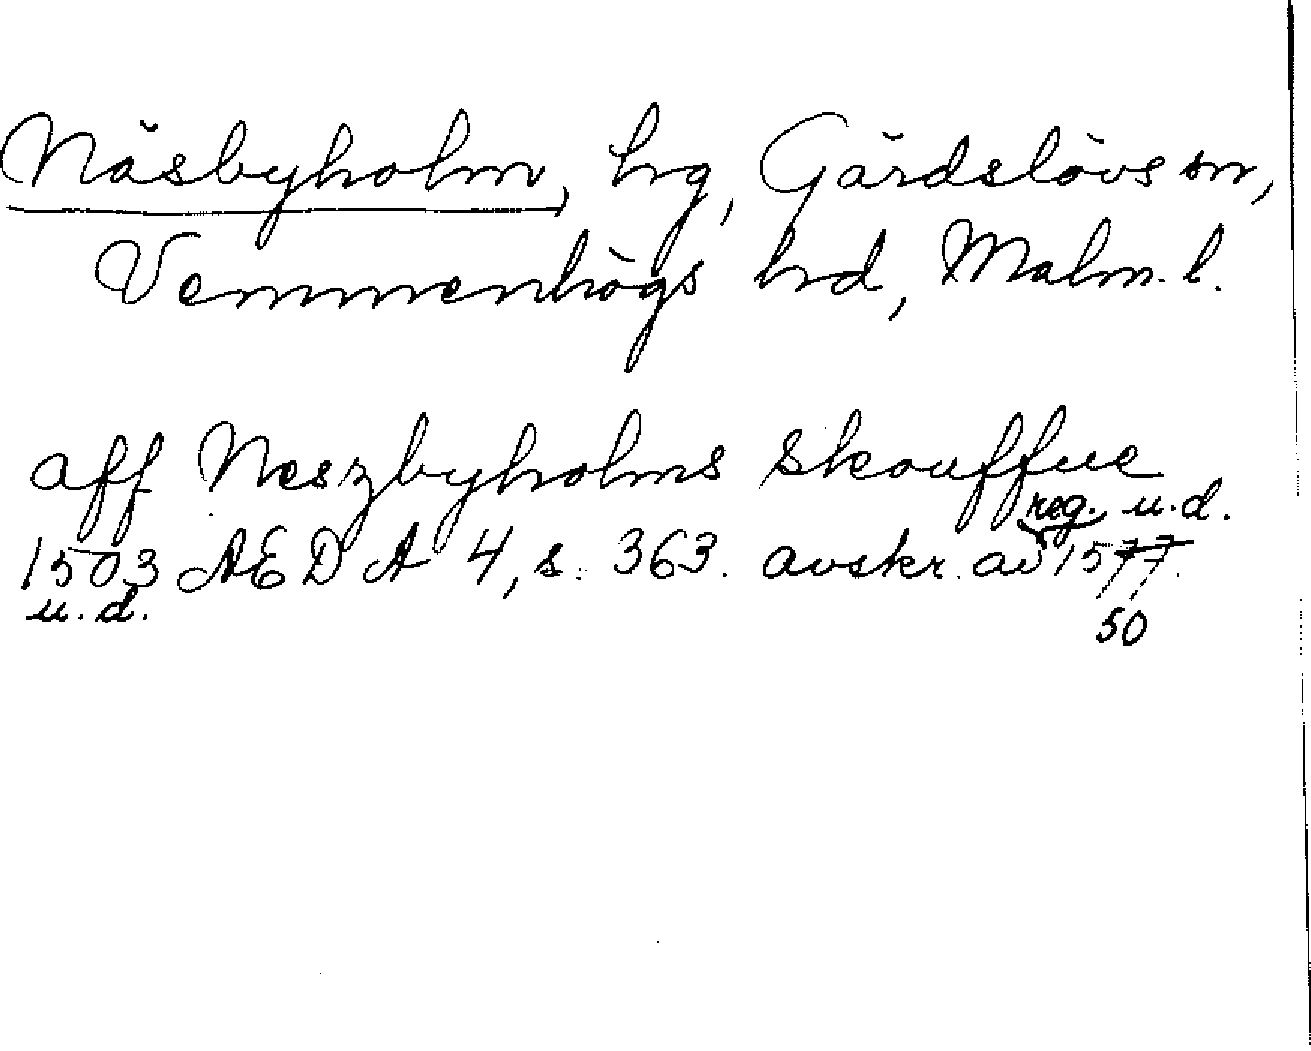 Näsbyholm, hrg, Gärdslövs sn,
Vemmenhögs hrd, Malm. l.
aff Neszbyholms skouffue
reg. u.d.
1503 AEDA 4, s. 363. avskr. av 1577.
u. d.
50